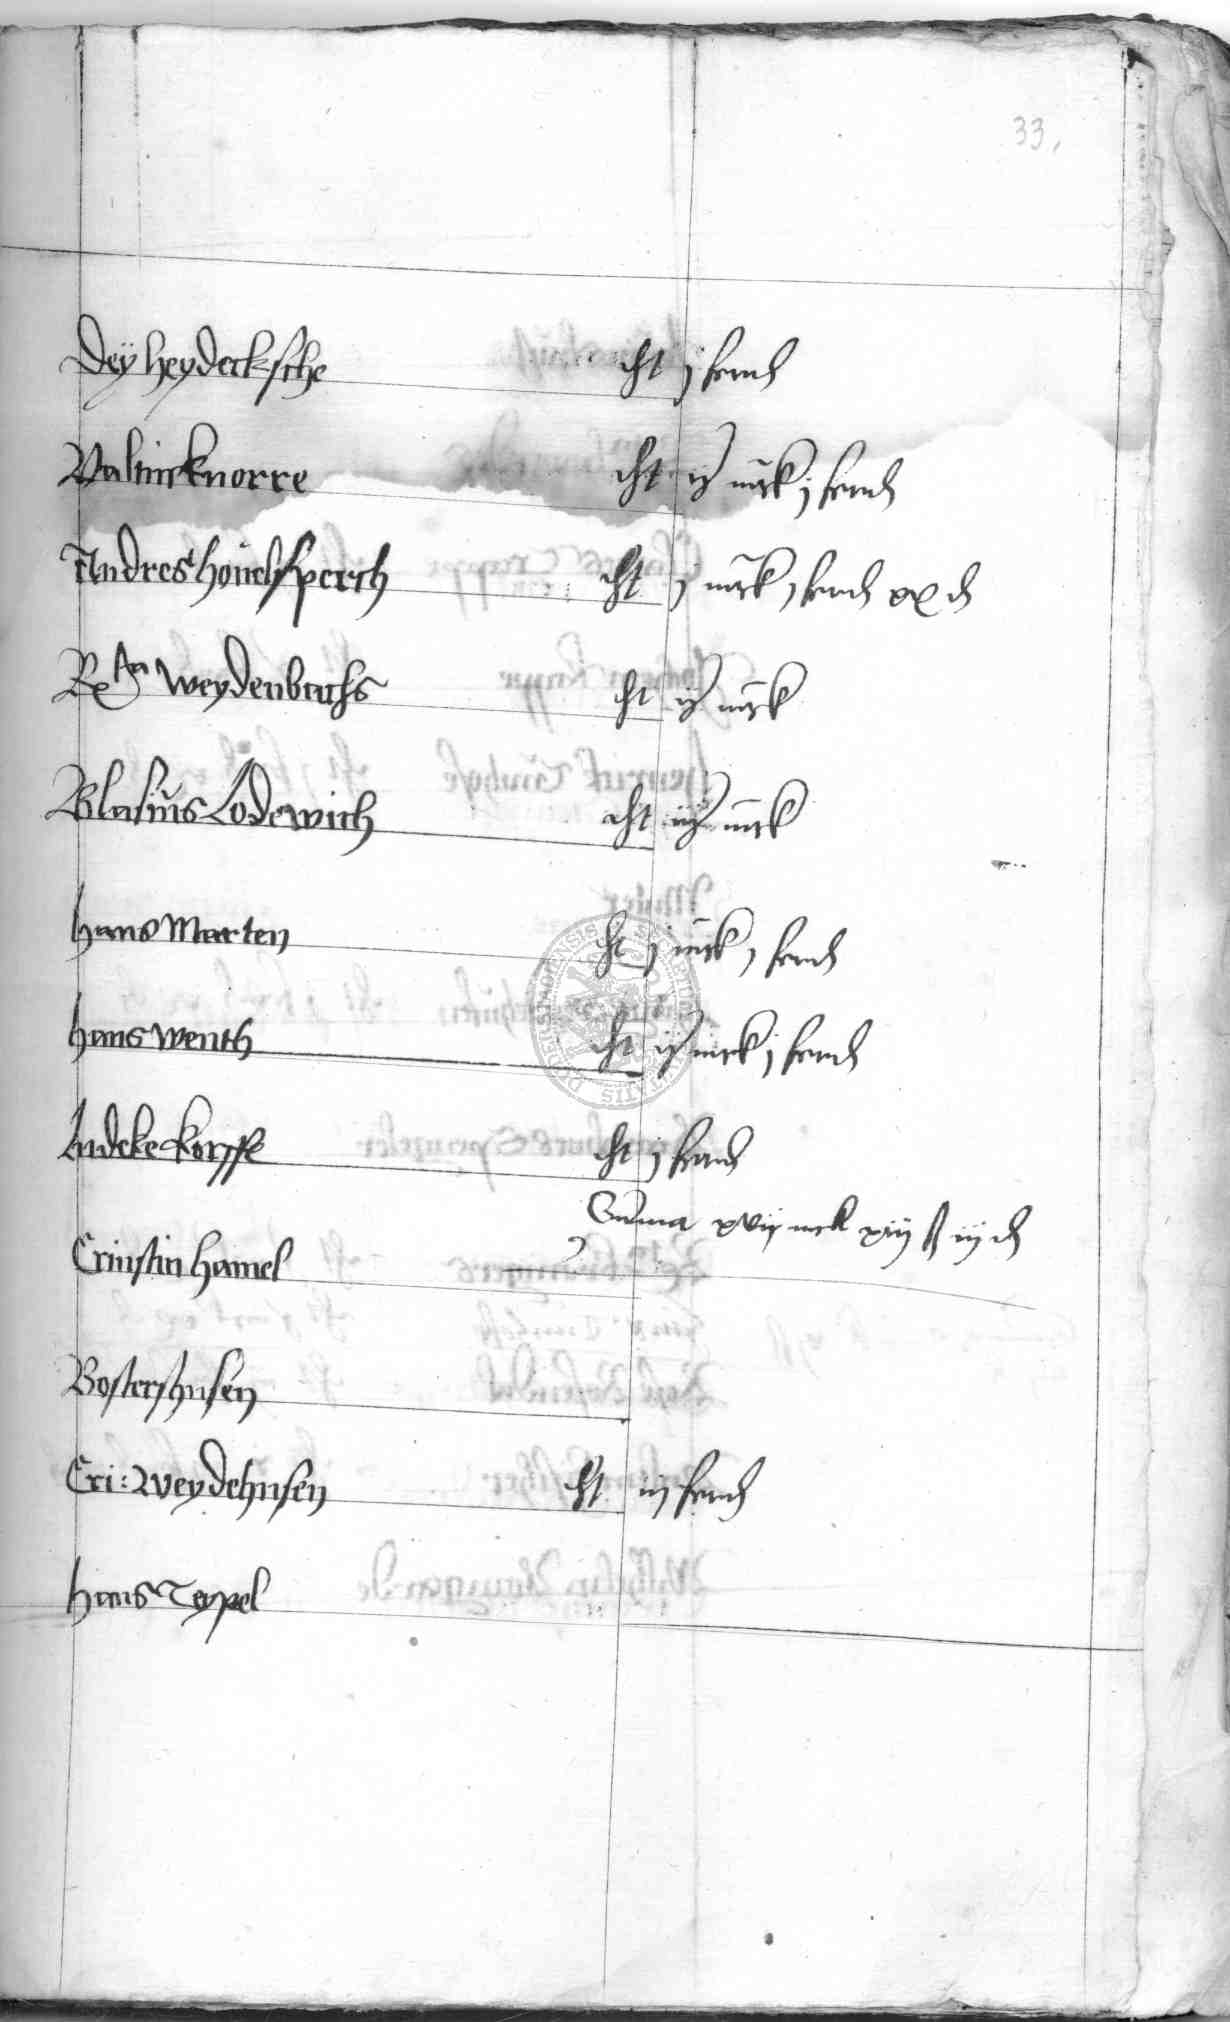 33.
Dey heydecksche dt j ferd
Valtin knorre dt ij mrk j ferd
Andres honelsperch dt j mrk j ferd xx d
Weydenbachs dt ij mrk
Blasius Lodewich dt iij mrk
hans Marten dt j mrk j ferd
hans wenth dt ij mrk j ferd
Ludeke korffe dt j ferd
Summa xvij mrk xiij ß iij d
Cristin hamel
Bostershusen
Cri: Weydehusen dt iij ferd
hans Teypel